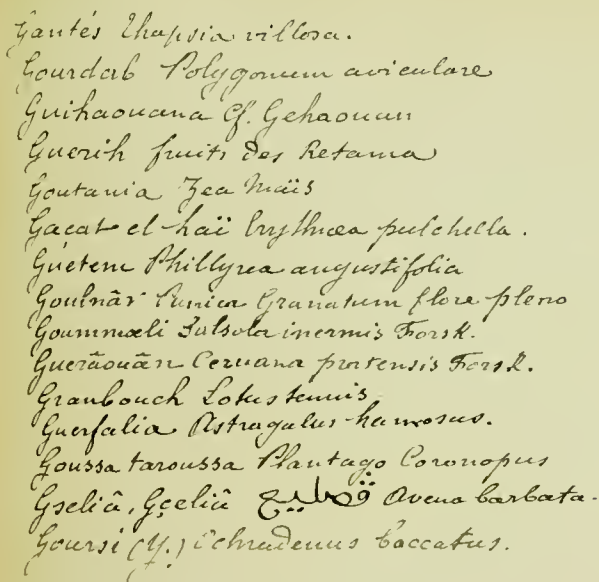 Gantés Thapsia villosa.
Gourdab Polygonum aviculare
Guihaouana Cf. Gehaouan
Guerih fruits des Retama
Goutania Zea Maïs
Gacat el haï Erythræa pulchella.
Guétem Phillyrea angustifolia
Goulnâr Punica Granatum flore pleno
Goummæli Salsola inermis Forsk.
Guerāouān Ceruana pratensis Forsk.
Granbouch Lotus tenuis
Guerfalia Astragalus hamosus.
Goussa taroussa Plantago Coronopus
Gseliâ, Gçeliâ Avena barbata.
Goursi (Y.) Ochradenus baccatus.